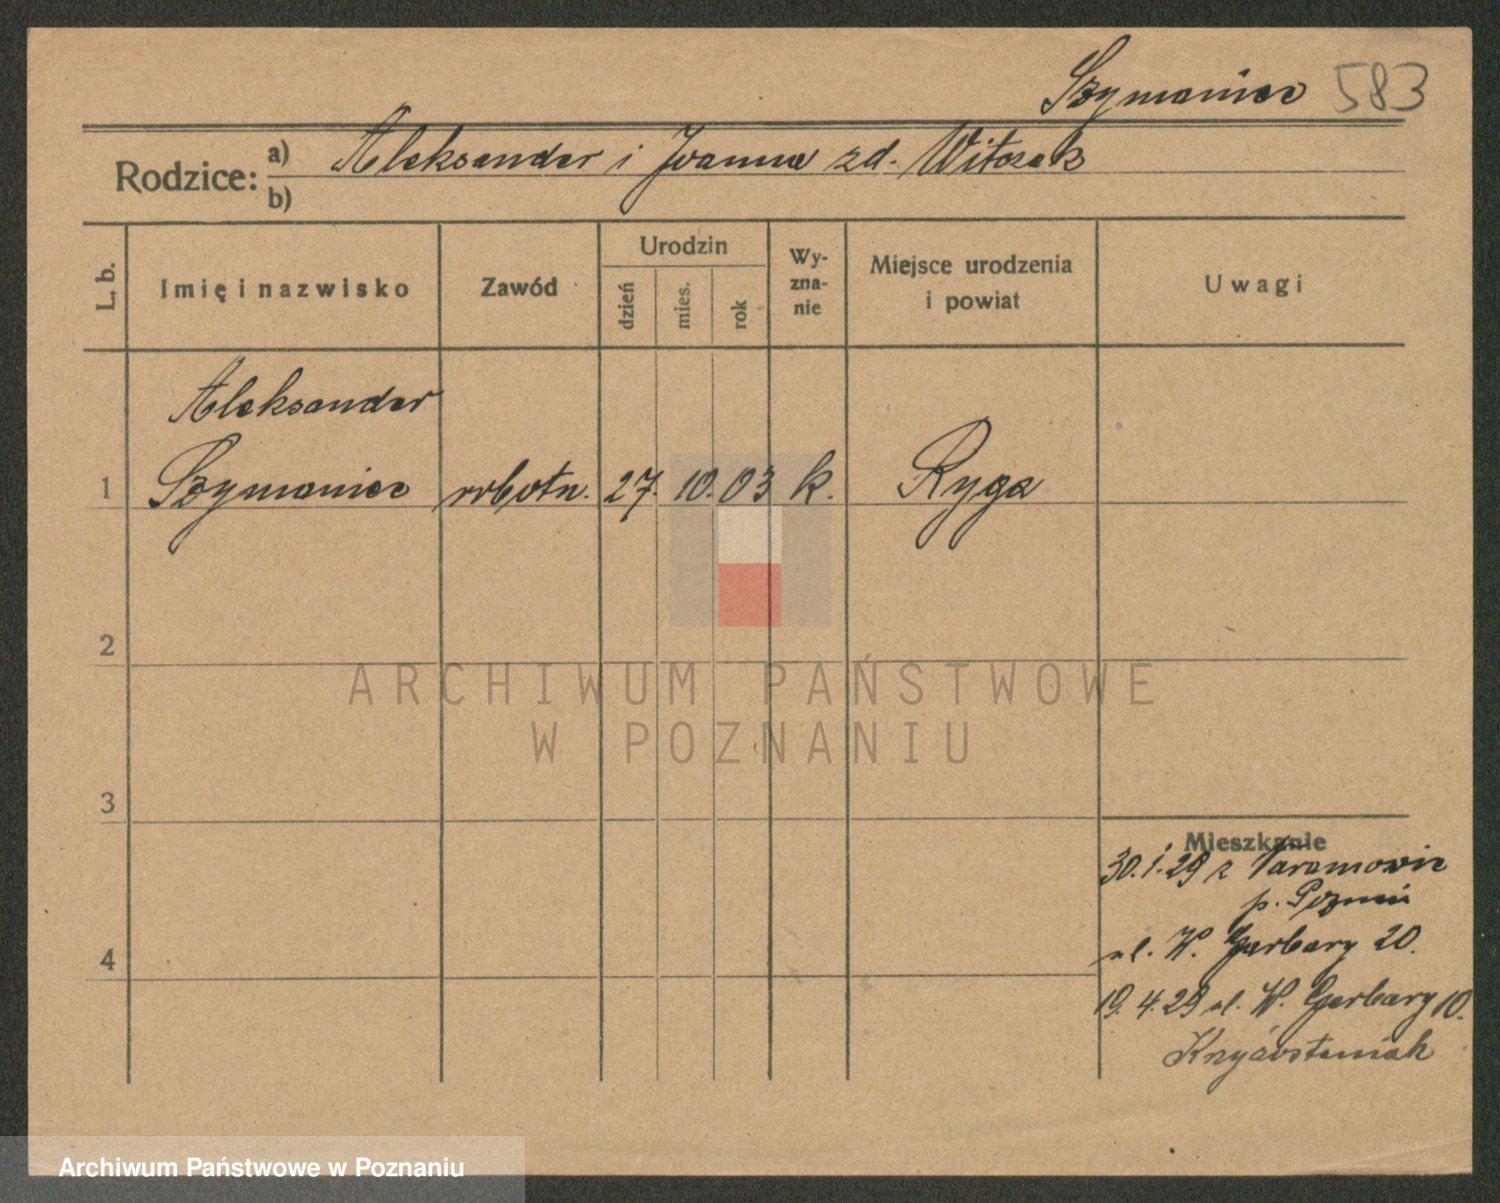 Szymaniec 583
Rodzice: a) Aleksander i Joanna zd. Witczak
b)
L. b. Imię i nazwisko Zawód Urodzin dzień mies. rok Wyznanie Miejsce urodzenia i powiat Uwagi
Aleksander
1 Szymaniec robotn. 27. 10. 03 k. Ryga
2
3
4
Mieszkanie
30. 1. 29 z
p. Poznań
ul. W. Garbary 20.
19. 4. 29 ul. W. Garbary 10.
ARCHIWUM PAŃSTWOWE
W POZNANIU
Archiwum Państwowe w Poznaniu